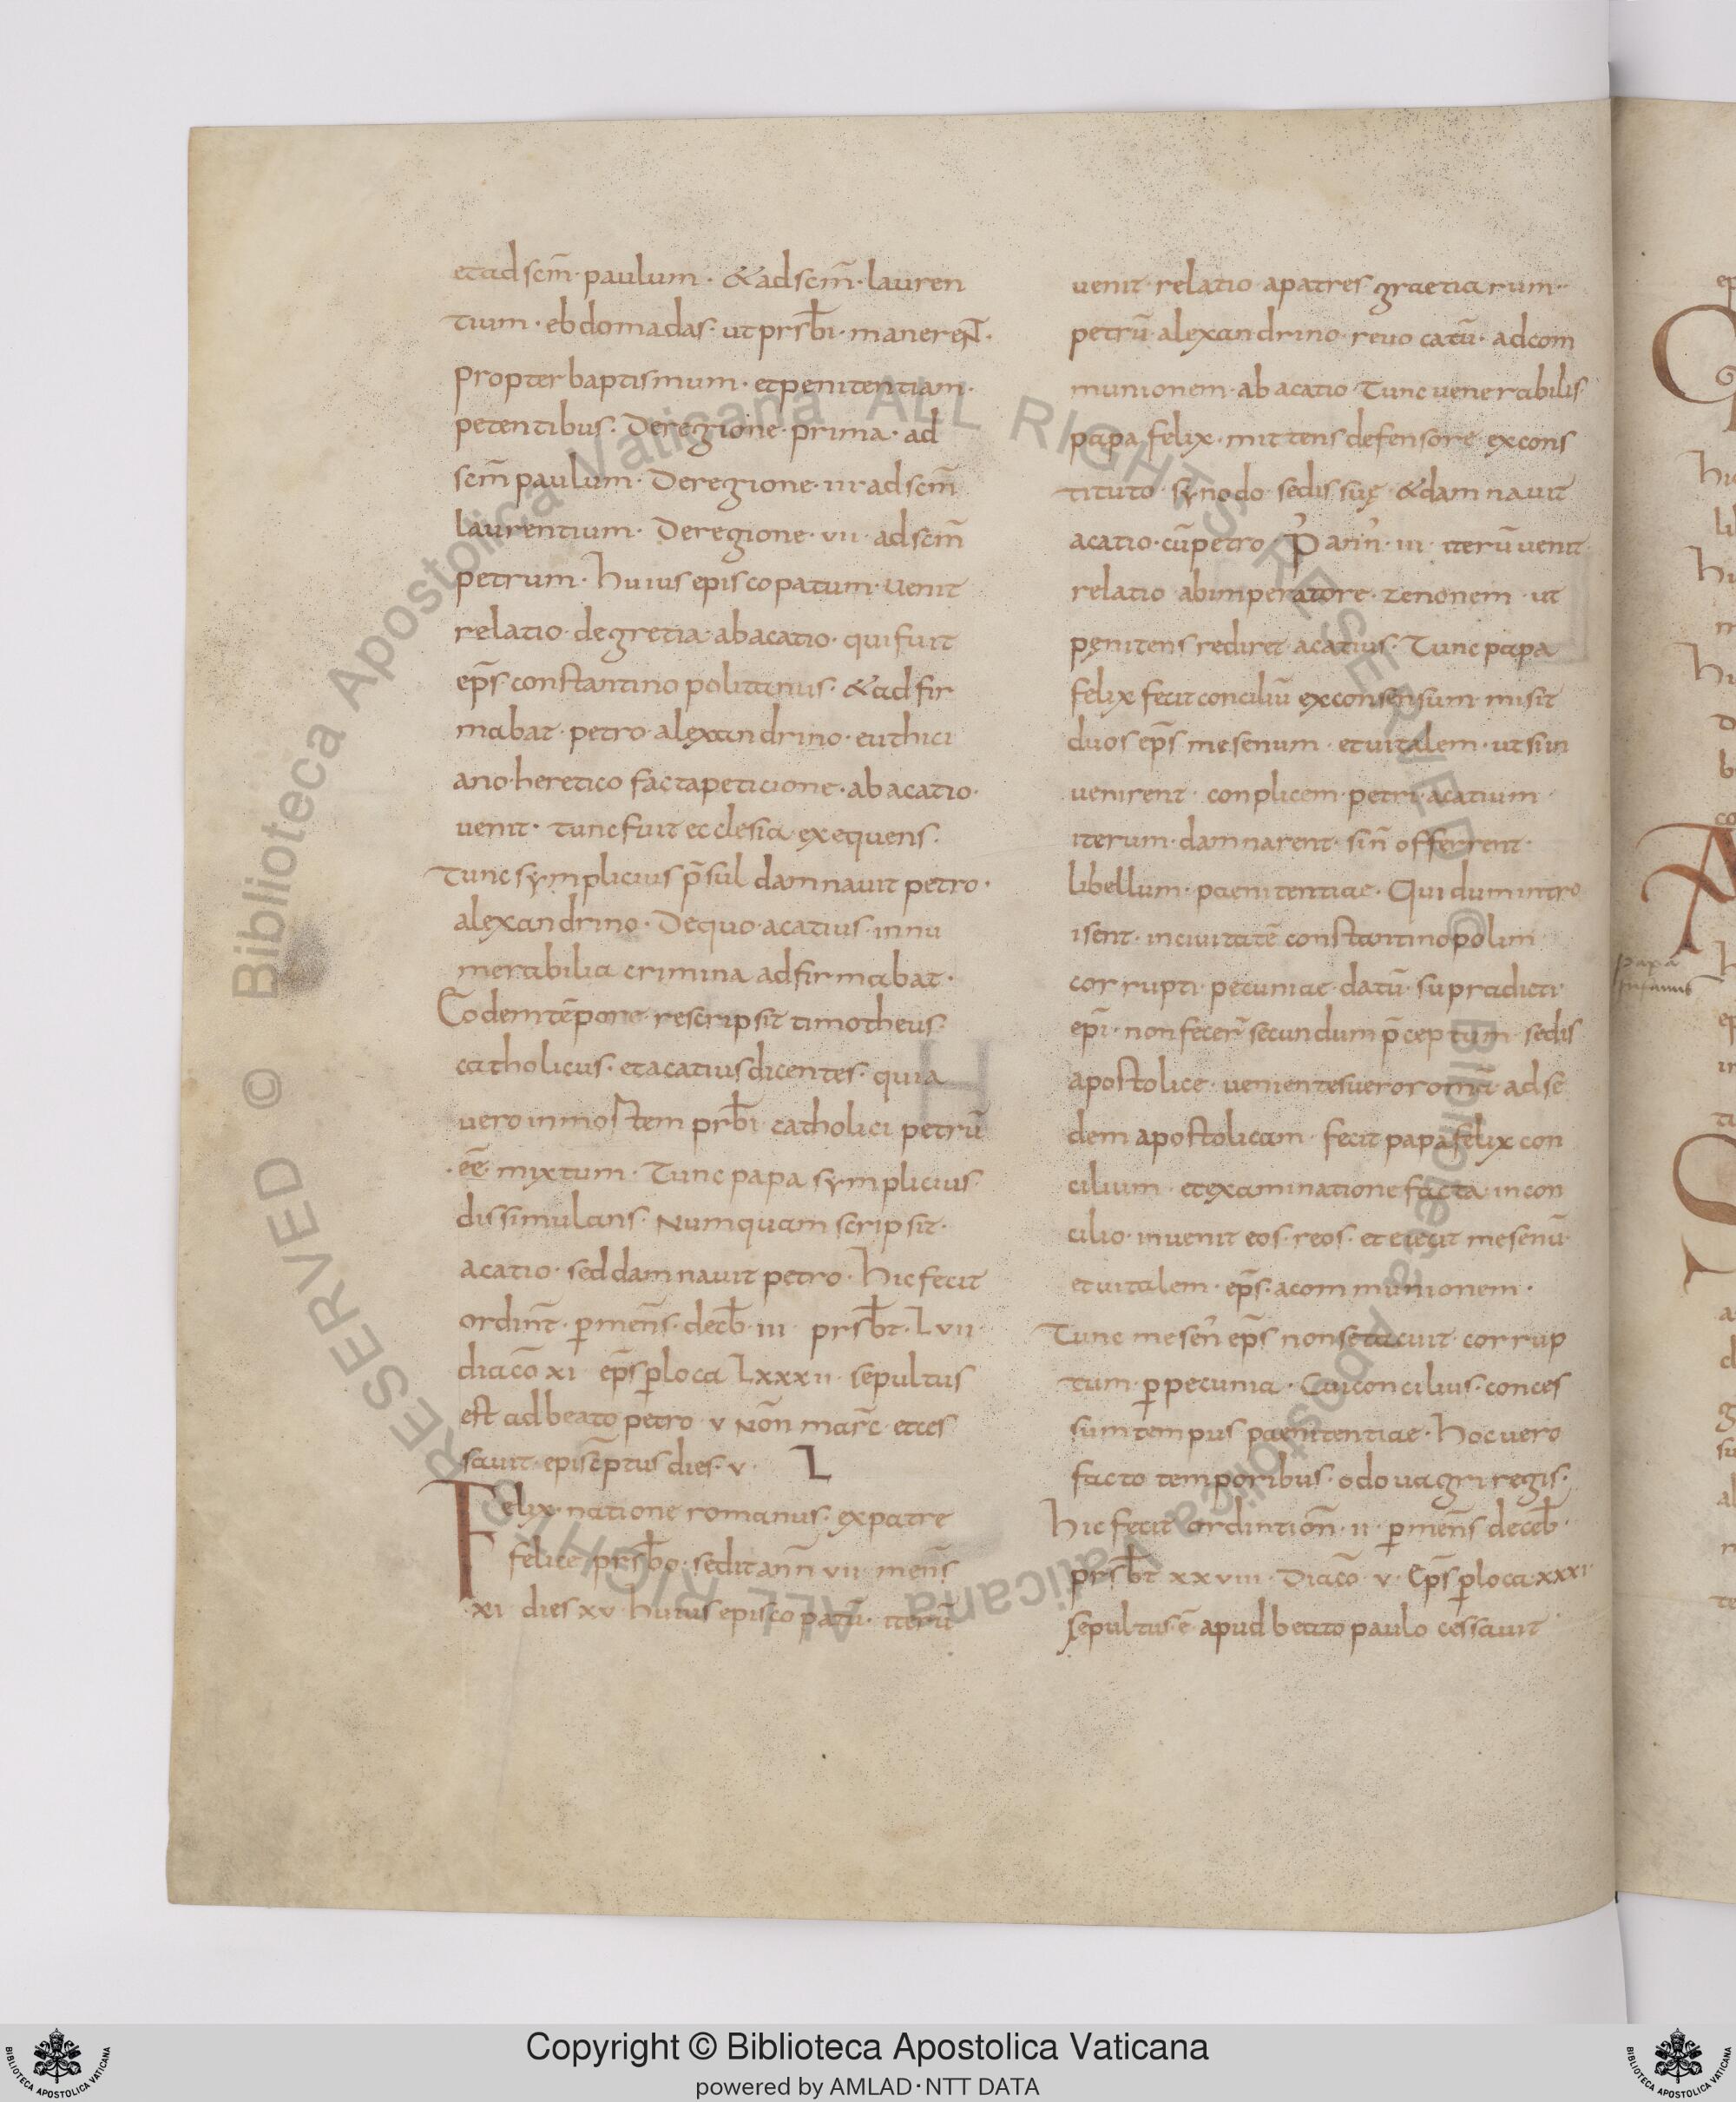 etad scm̄· paulum· & ad scm̄· lauren
tium· ebdomadas· ut prsb̄i· manereNT·
propter baptismum· et penitentiam·
petentibus· De regione· prima· ad
scm̄ paulum· De regione· iii· ad scm̄
laurentium· De regione· vii· ad scm̄
petrum· huius episcopatum· venit
relatio· de gretia· ab acatio· qui fuit
ep̄s constantinopolitanus· & adfir
mabat· petro· alexandrino· euthici
ano· heretico facta peticione· ab acatio·
venit· tunc fuit ecclesia· exequens·
Tunc symplicius p̄sul damnauit petro·
alexandrino· De quo· acatius· innu
merabilia crimina adfirmabat·
Eodem tēpore· rescripsit timotheus·
catholicus· et acatius dicentes· quia
uero in mostem prb̄i catholici petrū
·eē· mixtum· Tunc papa symplicius
dissimulans· Numquam scripsit·
acatio· sed damnauit petro· hic fecit
ordint̄· p̱ mens̄· decb̄· iii· prsb̄t· Lvii·
diacō xi· ep̄s p̱ loca Lxxxii· sepultus
est ad beato petro· v Non̄ marc̄· et ces
sauit· episc̄ptus dies· v· L
Felix· natione romanus· ex patre
felice prsb̄o· sedit ann̄ vii· mens̄
·xi· dies xv· huius episcopatū· iterū
uenit· relatio· a patres graetiarum·
petrū· alexandrino· reuocatū· ad com
munionem· ab acatio· Tunc uenerabilis·
papa felix· mittens defensore· ex cons
tituto· synodo· sedis suę· & damnauit
acatio· cū petro· P̓ ann̓· iii· iterū uenit
relatio· ab imperatore· zenonem· ut
pęnitens rediret acatius· Tunc papa
felix fecit conciliū ex consensum· misit
duos ep̄s mesenum· et uitalem· ut si in
uenirent· conplicem· petri· acatium·
iterum· damnarent· sin̄ offerrent·
libellum· paenitentiae· Qui dum intro
isent· in ciuitatē constantinopolim·
corrupti· petuniae· datū· supradicti·
ep̄i· non fecer̄ secundum p̄ceptum· sedis
apostolice· uenientes uero romā· ad se
dem apostolicam· fecit papa felix con
cilium· et examinatione facta· in con
cilio· inuenit eos· reos· et eiecit mesenū·
et uitalem· ep̄s· a communionem·
Tunc mesen̓ ep̄s non se tacuit· corrup
tum· p̱ pecunia· Cui concilius· conces
sum tempus paenitentiae· hoc uero
facto temporibus· odouagri regis·
hic fecit ordintion̄· ii· p̱ mens̄ deceb̄·
prsb̄t xxviii· Diacō· v· Ep̄s p̱ loca· xxxi·
sepultus· ē· apud beato paulo cessauit
Copyright © Biblioteca Apostolica Vaticana
powered by AMLAD·NTT DATA
© Biblioteca Apostolica Vaticana ALL RIGHTS RESERVED
© Biblioteca Apostolica Vaticana ALL RIGHTS RESERVED
BIBLIOTECA APOSTOLICA VATICANA
BIBLIOTECA APOSTOLICA VATICANA